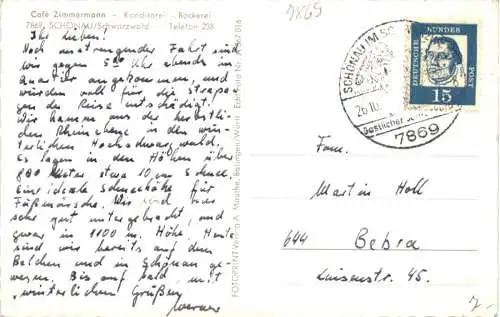 Café Zimmermann - Konditorei - Bäckerei
7869 SCHÖNAU/Schwarzwald Telefon 238
Ihr Lieben!
Nach anstrengender Fahrt sind
wir gegen 5 Uhr abends in
Quartier angekommen, und
wurden voll für die Strapa-
zen der Reise entschädigt.
Wir kamen aus der herbstli-
chen Rheinebene in den win-
terlichen Hochschwarzwald.
Es lagen in den Höhen über
800 Meter etwa 10 cm Schnee
Eine ideale Schneehöhe für
Fußmärsche. Wir sind
sehr gut untergebracht, und
zwar in 1100 m. Höhe. Heute
sind wir bereits auf dem
Belchen und in Schönau ge-
wesen. Bis auf bald, mit
winterlichen Grüßen
Werner
FOTOPRINT Verlag A.
7869
SCHÖNAU IM
26.10.
7869
DEUTSCHE BUNDES POST
15
Fam.
Martin Holl
644 Bebra
Luisenstr. 45.
7.-